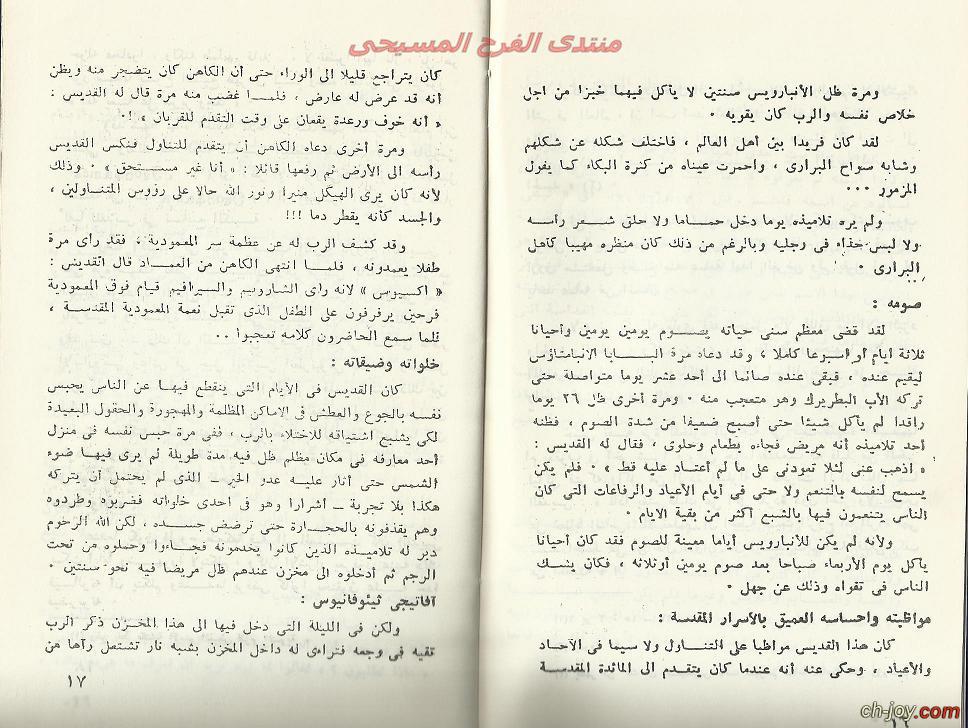 منتدى الفرح المسيحى
ومرة ظل الأنبارويس سنتين لا يأكل فيهما خبزا من اجل
خلاص نفسه والرب كان يقويه ٠
لقد كان فريدا بين أهل العالم ، فاختلف شكله عن شكلهم
وشابه سواح البرارى ، واحمرت عيناه من كثرة البكاء كما يقول
المزمور ٠٠٠
ولم يره تلاميذه يوما دخل حماما ولا حلق شعر رأسه
ولا لبس حذاء فى رجليه وبالرغم من ذلك كان منظره مهيبا كاهل
البرارى ٠
صومه :
لقد قضى معظم سنى حياته يصوم يومين يومين وأحيانا
ثلاثة أيام أو اسبوعا كاملا ، وقد دعاه مرة البابا الانبامتاؤس
ليقيم عنده ، فبقى عنده صائما الى أحد عشر يوما متواصلة حتى
تركه الأب البطريرك وهو متعجب منه ٠ ومرة أخرى ظل ٢٦ يوما
راقدا لم يأكل شيئا حتى أصبح ضعيفا من شدة الصوم ، فظنه
أحد تلاميذه أنه مريض فجاءه بطعام وحلوى ، فقال له القديس :
« اذهب عنى لئلا تعودنى على ما لم أعتاد عليه قط » ٠ فلم يكن
يسمح لنفسه بالتنعم ولا حتى فى أيام الأعياد والرفاعات التى كان
الناس يتنعمون فيها بالشبع أكثر من بقية الايام ٠
ولأنه لم يكن للأنبارويس أياما معينة للصوم فقد كان أحيانا
يأكل يوم الأربعاء صباحا بعد صوم يومين أوثلاثه ، فكان ينسك
الناس فى تقواه وذلك عن جهل ٠
مواظبته واحساسه العميق بالأسرار المقدسة :
كان هذا القديس مواظبا على التناول ولا سيما فى الآحاد
والأعياد ، وحكى عنه أنه عندما كان يتقدم الى المائدة المقدسة
كان يتراجع قليلا الى الوراء حتى أن الكاهن كان يتضجر منه ويظن
أنه قد عرض له عارض ، فلما غضب منه مرة قال له القديس :
« أنه خوف ورعدة يقعان على وقت التقدم للقربان » !٠
ومرة أخرى دعاه الكاهن أن يتقدم للتناول فنكس القديس
رأسه الى الأرض ثم رفعها قائلا : « أنا غير مستحق » ٠ وذلك
لأنه كان يرى الهيكل منيرا ونور الله حالا على رؤوس المتناولين ،
والجسد كأنه يقطر دما !!!
وقد كشف الرب له عن عظمة سر المعمودية ، فقد رأى مرة
طفلا يعمدونه ، فلما انتهى الكاهن من العماد قال القديس :
« اكسيوس » لانه راى الشاروبيم والسيرافيم قيام فوق المعمودية
فرحين يرفرفون على الطفل الذى تقبل نعمة المعمودية المقدسة ،
فلما سمع الحاضرون كلامه تعجبوا ٠٠
خلواته وضيقاته :
كان القديس فى الأيام التى ينقطع فيها عن الناس يحبس
نفسه بالجوع والعطش فى الاماكن المظلمة والمهجورة والحقول البعيدة
لكى يشبع اشتياقه للاختلاء بالرب ، ففى مرة حبس نفسه فى منزل
أحد معارفه فى مكان مظلم ظل فيه مدة طويلة لم يرى فيها ضوء
الشمس حتى أثار عليه عدو الخير ــ الذى لم يحتمل أن يتركه
هكذا بلا تجربة ــ أشرارا وهو فى احدى خلواته فضربوه وطردوه
وهم يقذفونه بالحجارة حتى ترضض جسده ، لكن الله الرحوم
دبر له تلاميذه الذين كانوا يخدمونه فجاءوا وحملوه من تحت
الرجم ثم أدخلوه الى مخزن عندهم ظل مريضا فيه نحو سنتين ٠
آفاتيجى ثيئوفانيوس :
ولكن فى الليلة التى دخل فيها الى هذا المخزن ذكر الرب
تقيه فى وجعه فتراءى له داخل المخزن بشبه نار تشتعل رآها من
١٧
ch-joy.com